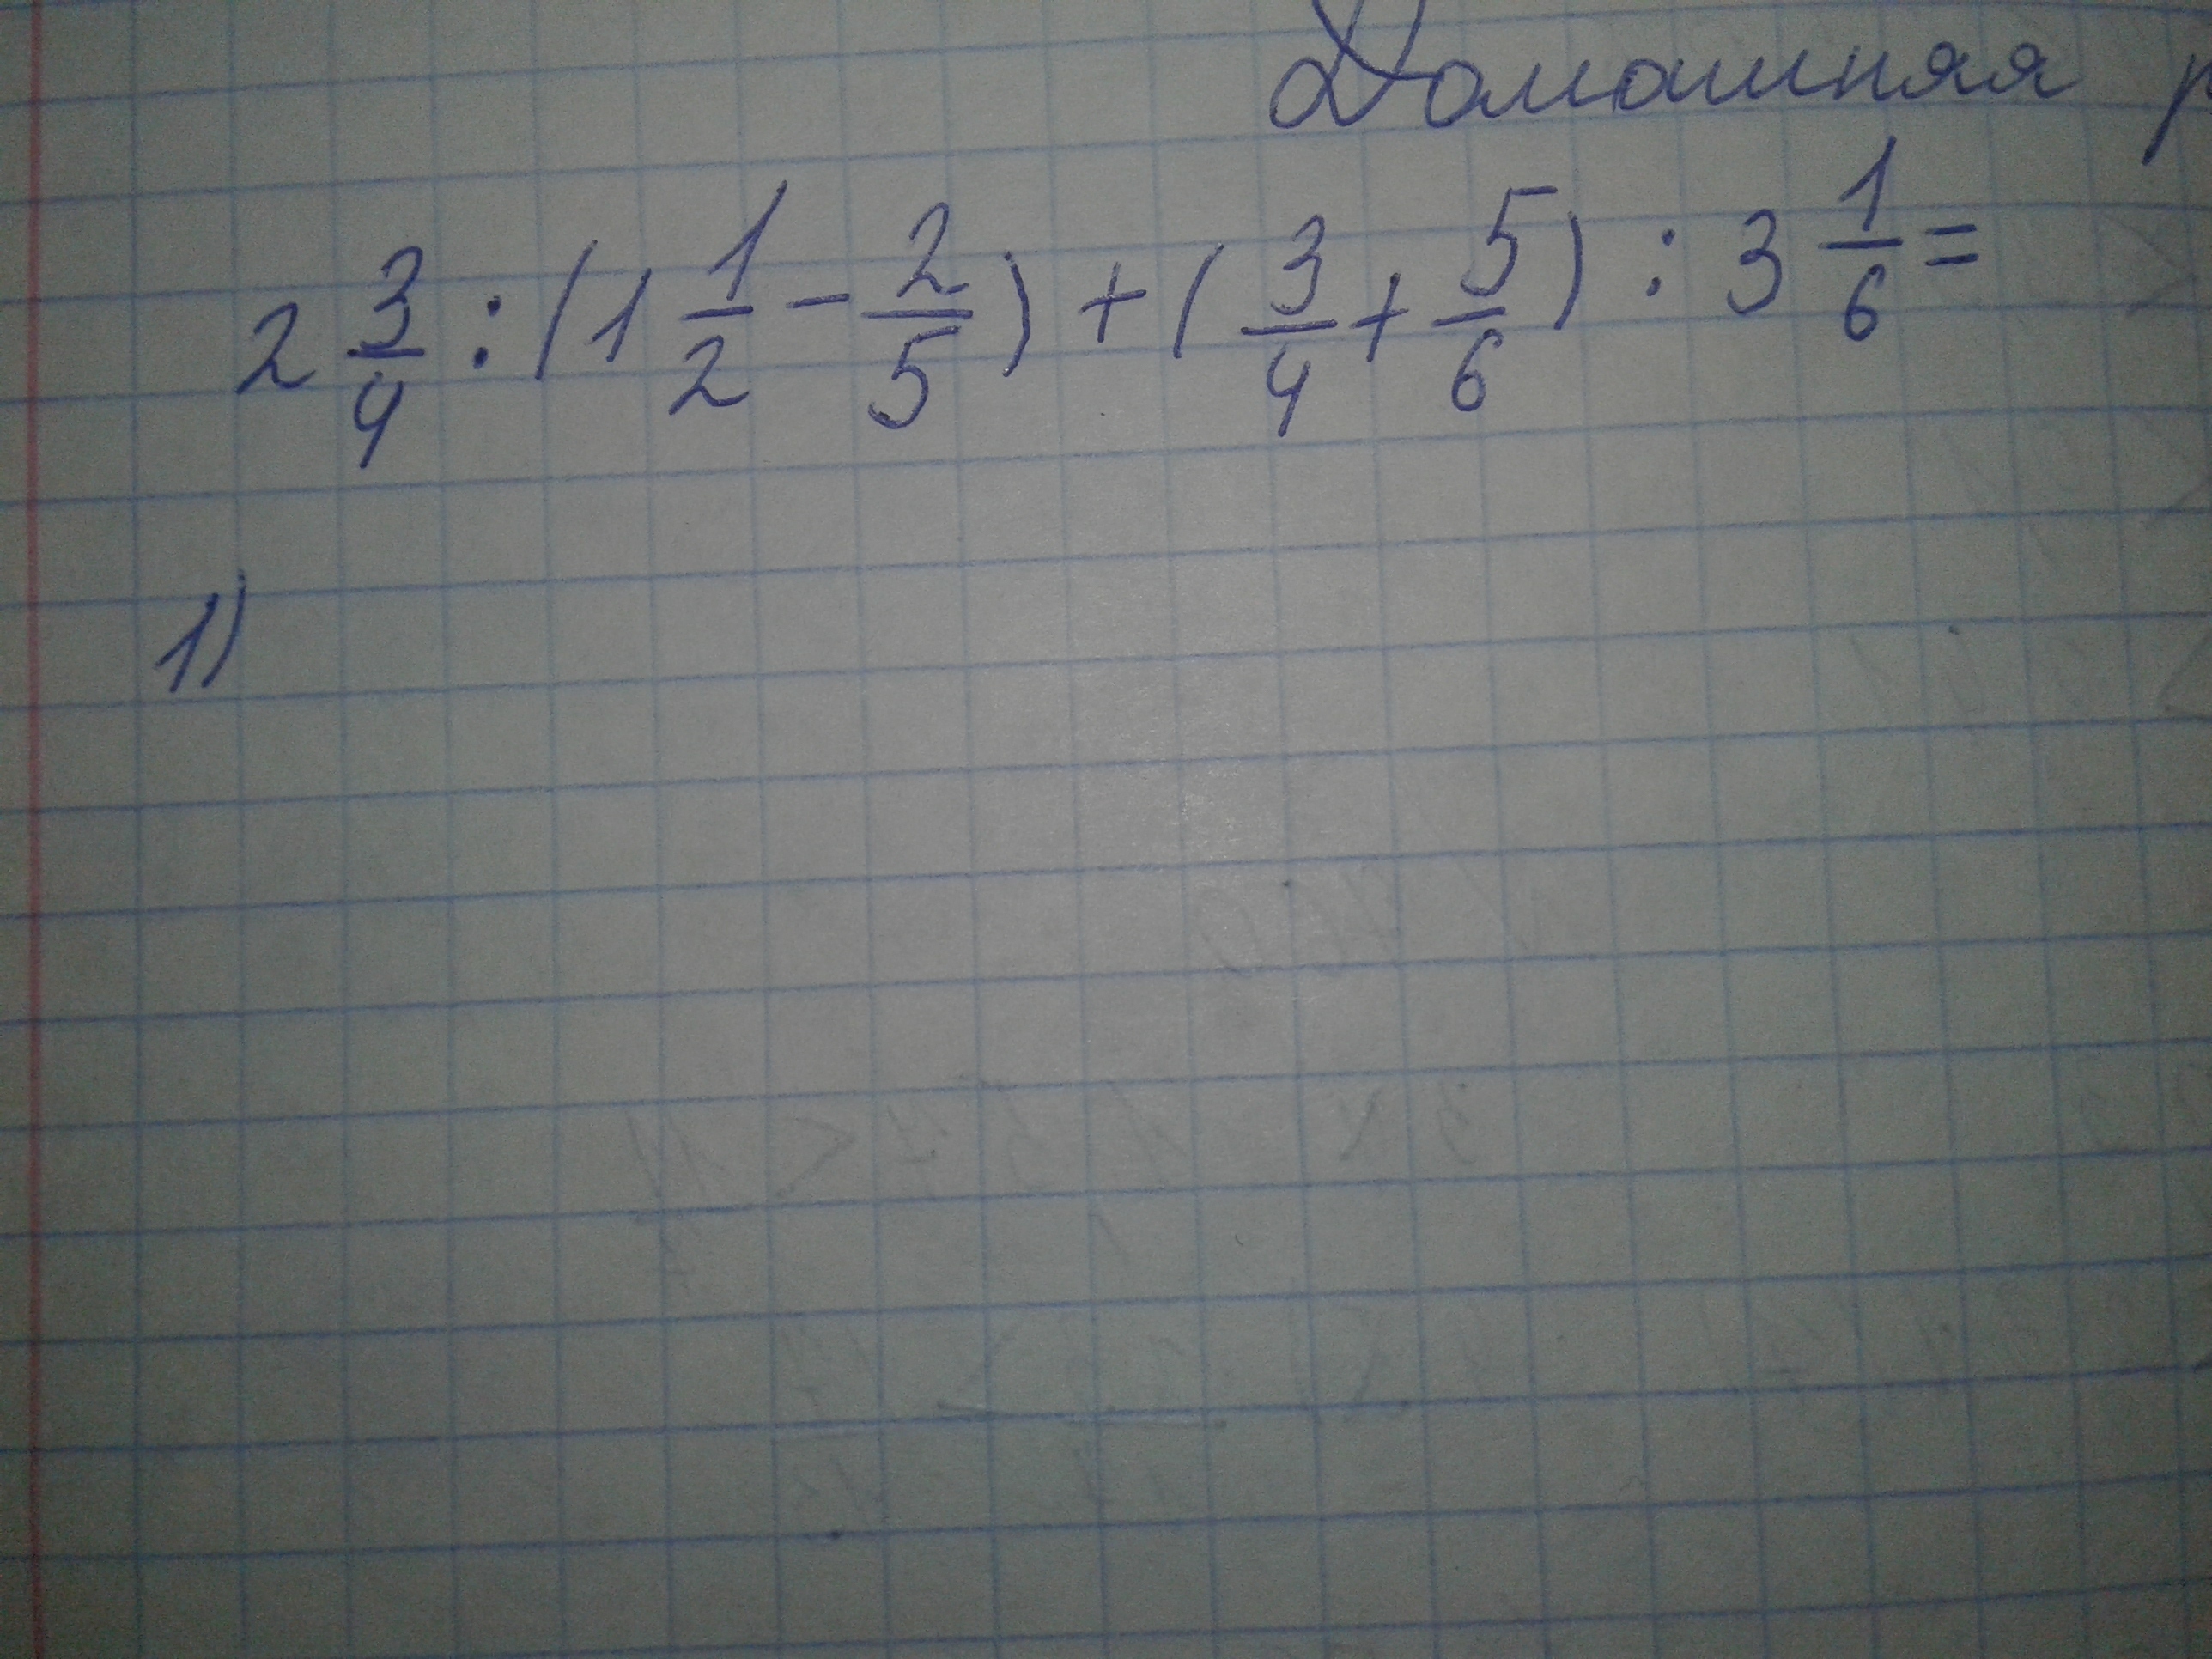 Домашняя
2 3/4 : (1 1/2 - 2/5) + (3/4 + 5/6) : 3 1/6 =
1)